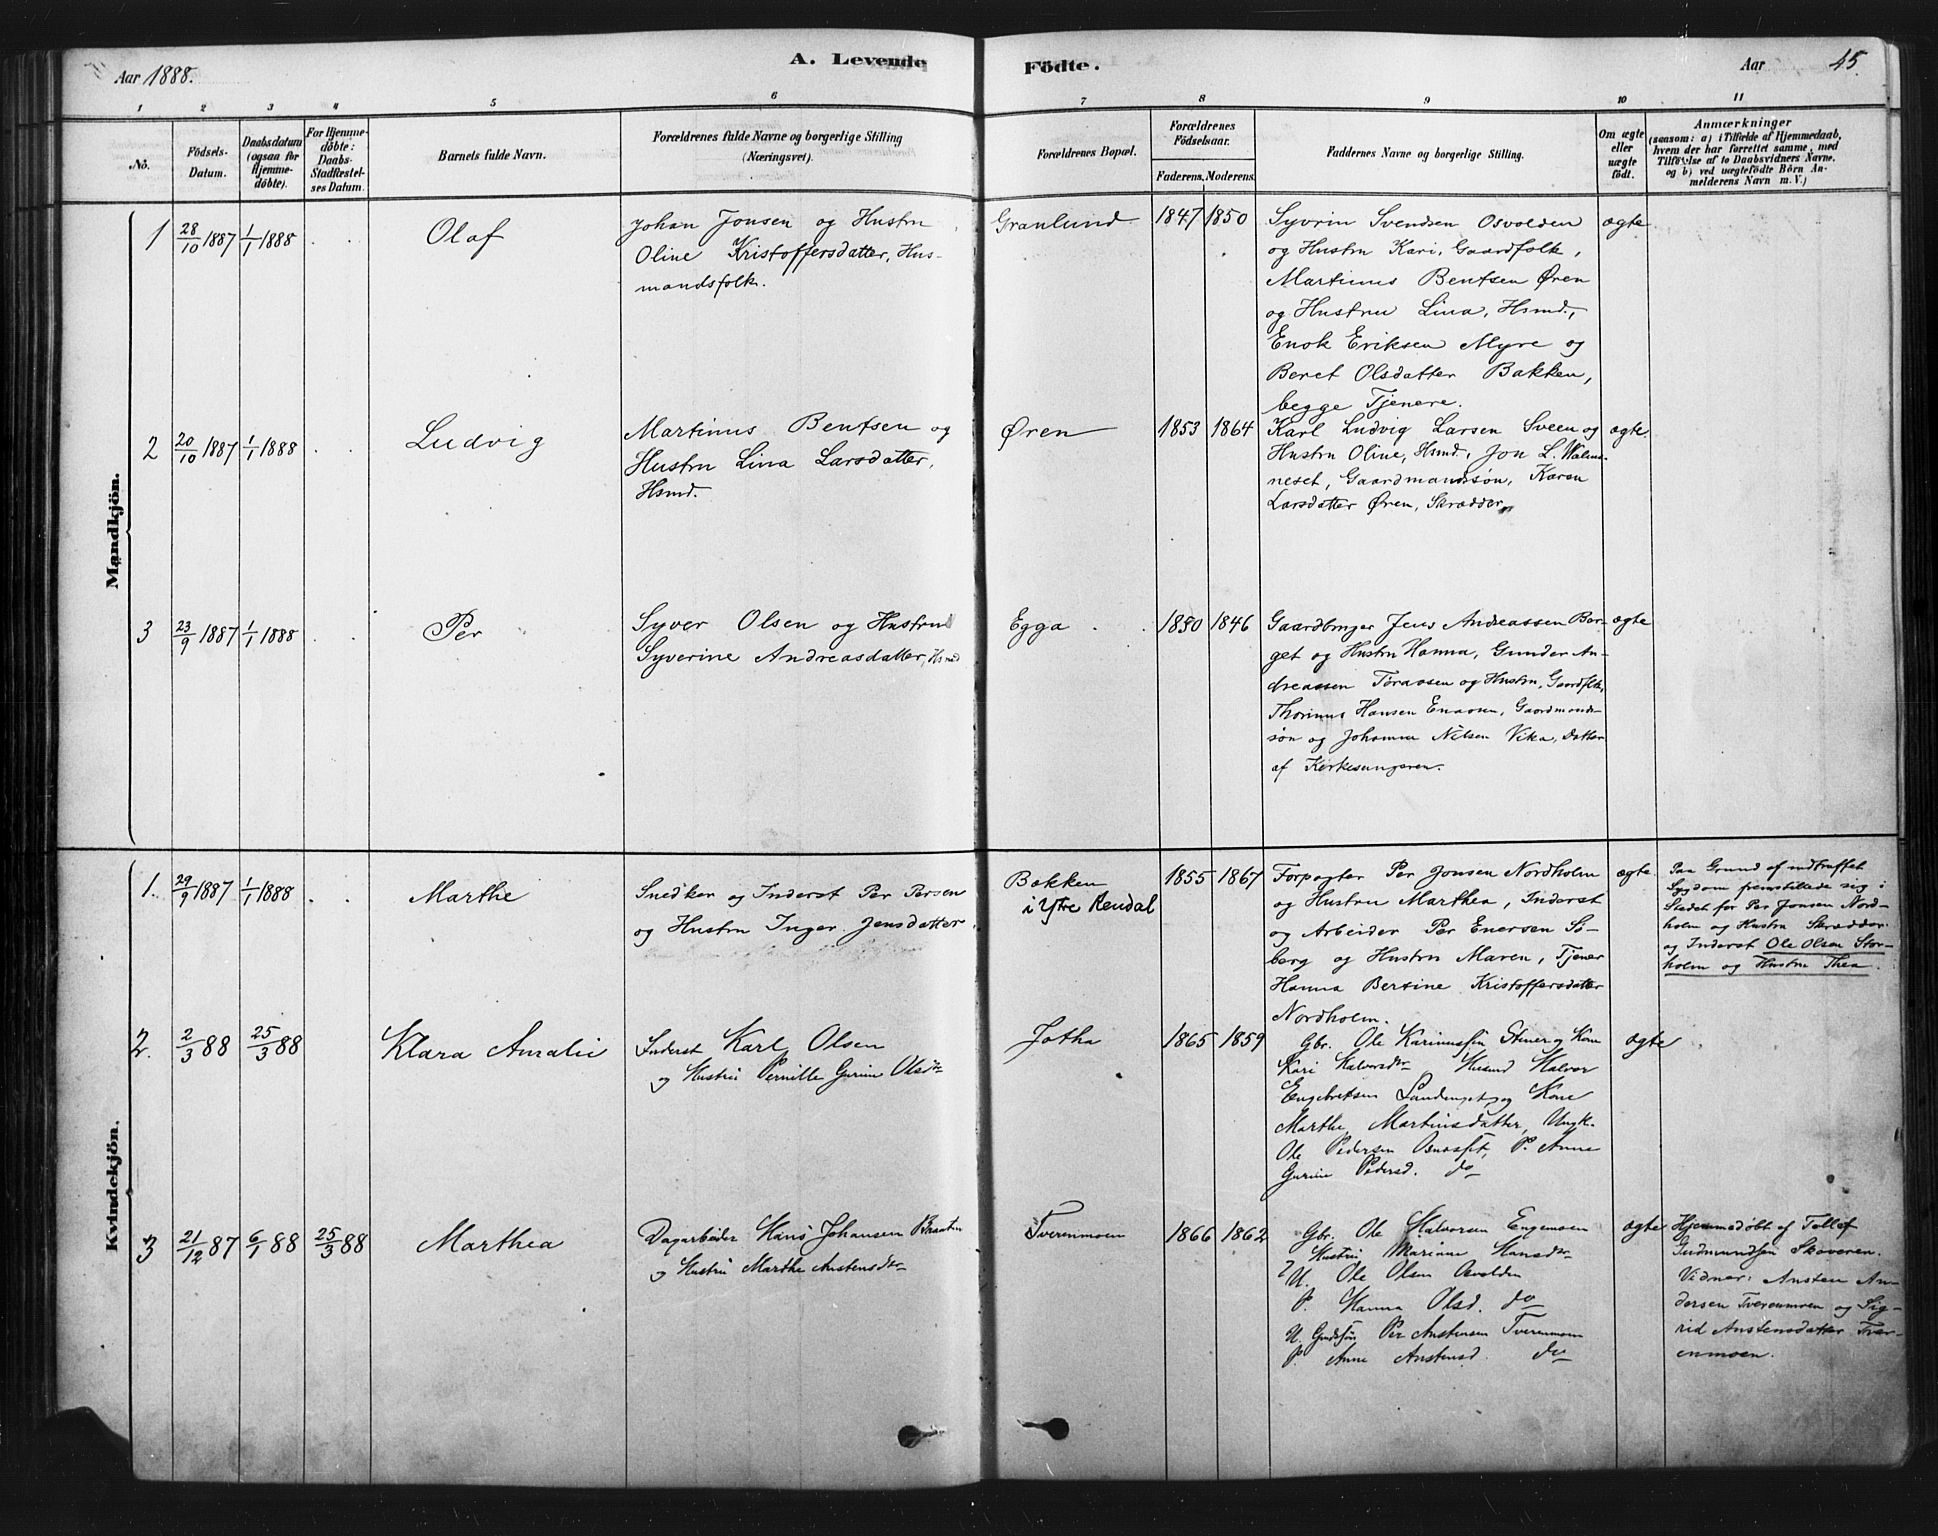 Aar 1888.
A. Levende Födte.
Aar
45.
1 2 3 4 5 6 7 8 9 10 11
No.
Födsels-
Datum.
Daabsdatum
(ogsaa for
Hjemme-
döbte).
For Hjemme-
döbte:
Daabs-
Stadfæstel-
ses Datum.
Barnets fulde Navn.
Forældrenes fulde Navne og borgerlige Stilling
(Næringsvei).
Forældrenes Bopæl.
Forældrenes
Födselsaar.
Faderens. Moderens.
Faddernes Navne og borgerlige Stilling.
Om ægte
eller
uægte
födt.
Anmærkninger
(saasom: a) i Tilfælde af Hjemmedaab,
hvem der har forrettet samme, med
Tilföielse af to Daabsvidners Navne,
og b) ved uægtefödte Börn An-
melderens Navn m. V.)
Mandkjön.
1 28/10 1887 1/1 1888 . . Olaf
Johan Jonsen og Hustru
Oline Kristoffersdatter, Hus-
mandsfolk.
Granlund 1847 1850
Syvrin Svendsen Osvolden
og Hustru Kari, Gaardfolk,
Martinus Bentsen Øren
og Hustru Lina, Hsmd.,
Enok Eriksen Myre og
Beret Olsdatter Bakken,
begge Tjenere.
ægte
2 20/10 1887 1/1 1888 . . Ludvig
Martinus Bentsen og
Hustru Lina Larsdatter,
Hsmd.
Øren 1853 1864
Karl Ludvig Larsen Sveen og
Hustru Oline, Hsmd., Jon L. Walm-
neset, Gaardmandssøn, Karen
Larsdatter Øren, Skrædder
ægte
3 23/9 1887 1/1 1888 . . Per
Syver Olsen og Hustru
Syverine Andreasdatter, Hsmd
Egga 1850 1846
Gaardbruger Jens Andreassen Bor-
get og Hustru Hanna, Gunder An-
dreassen Töraasen og Hustru, Gaardfolk,
Thorinus Hansen Enaasen, Gaardmands-
søn og Johanna Nilsen Vika, Datter
af Kirkesangeren.
ægte
Kvindekjön.
1. 29/9 1887 1/1 1888 . . Marthe
Snedker og Inderst Per Persen
og Hustru Inger Jensdatter.
Bakken
i Ytre Rendal
1855 1867
Forpagter Per Jonsen Nordholm
og Hustru Marthea, Inderst
og Arbeider Per Enersen So-
berg og Hustru Maren, Tjener
Hanna Bersine Kristoffersdatter
Nordholm.
ægte
Paa Grund af indtruffet
Sygdom fremstillede sig i
Stedet for Per Jonsen Nord-
holm og Hustru Skrædder
og Inderst Ole Olsen Stor-
holm og Hustru Thea.
2. 2/3 88 25/3 88 Klara Amalie
Inderst Karl Olsen
og Hustru Pernille Gurine Olsdtr
Jotha 1865 1859
Gbr. Ole Karinussen Stener og Kone
Kari Halvorsdtr Husmd Halvor
Engebretsen Sandenget og Kone
Marthe Martinusdatter, Ungk.
Ole Pedersen P. Anne
Gurine Pedersd. do
ægte
3 21/12 87 6/1 88 25/3 88 Marthea
Dagarbeider Hans Johansen
og Hustru Marthe Austensdtr
Tverenmoen 1866 1862
Gbr. Ole Halvorsen Engemoen
Hustru Mariane Hansdtr
U. Ole Olsen Osvolden
P. Hanna Olsd. do
U. Gaardsøn Per Austensen Tverenmoen
P. Anne Austensd. do
ægte
Hjemmedøbt af Tollef
Gudmundsen Skoveren.
Vidner: Austen An-
dersen Tverenmoen og Sig-
rid Austensdatter Tver-
enmoen.